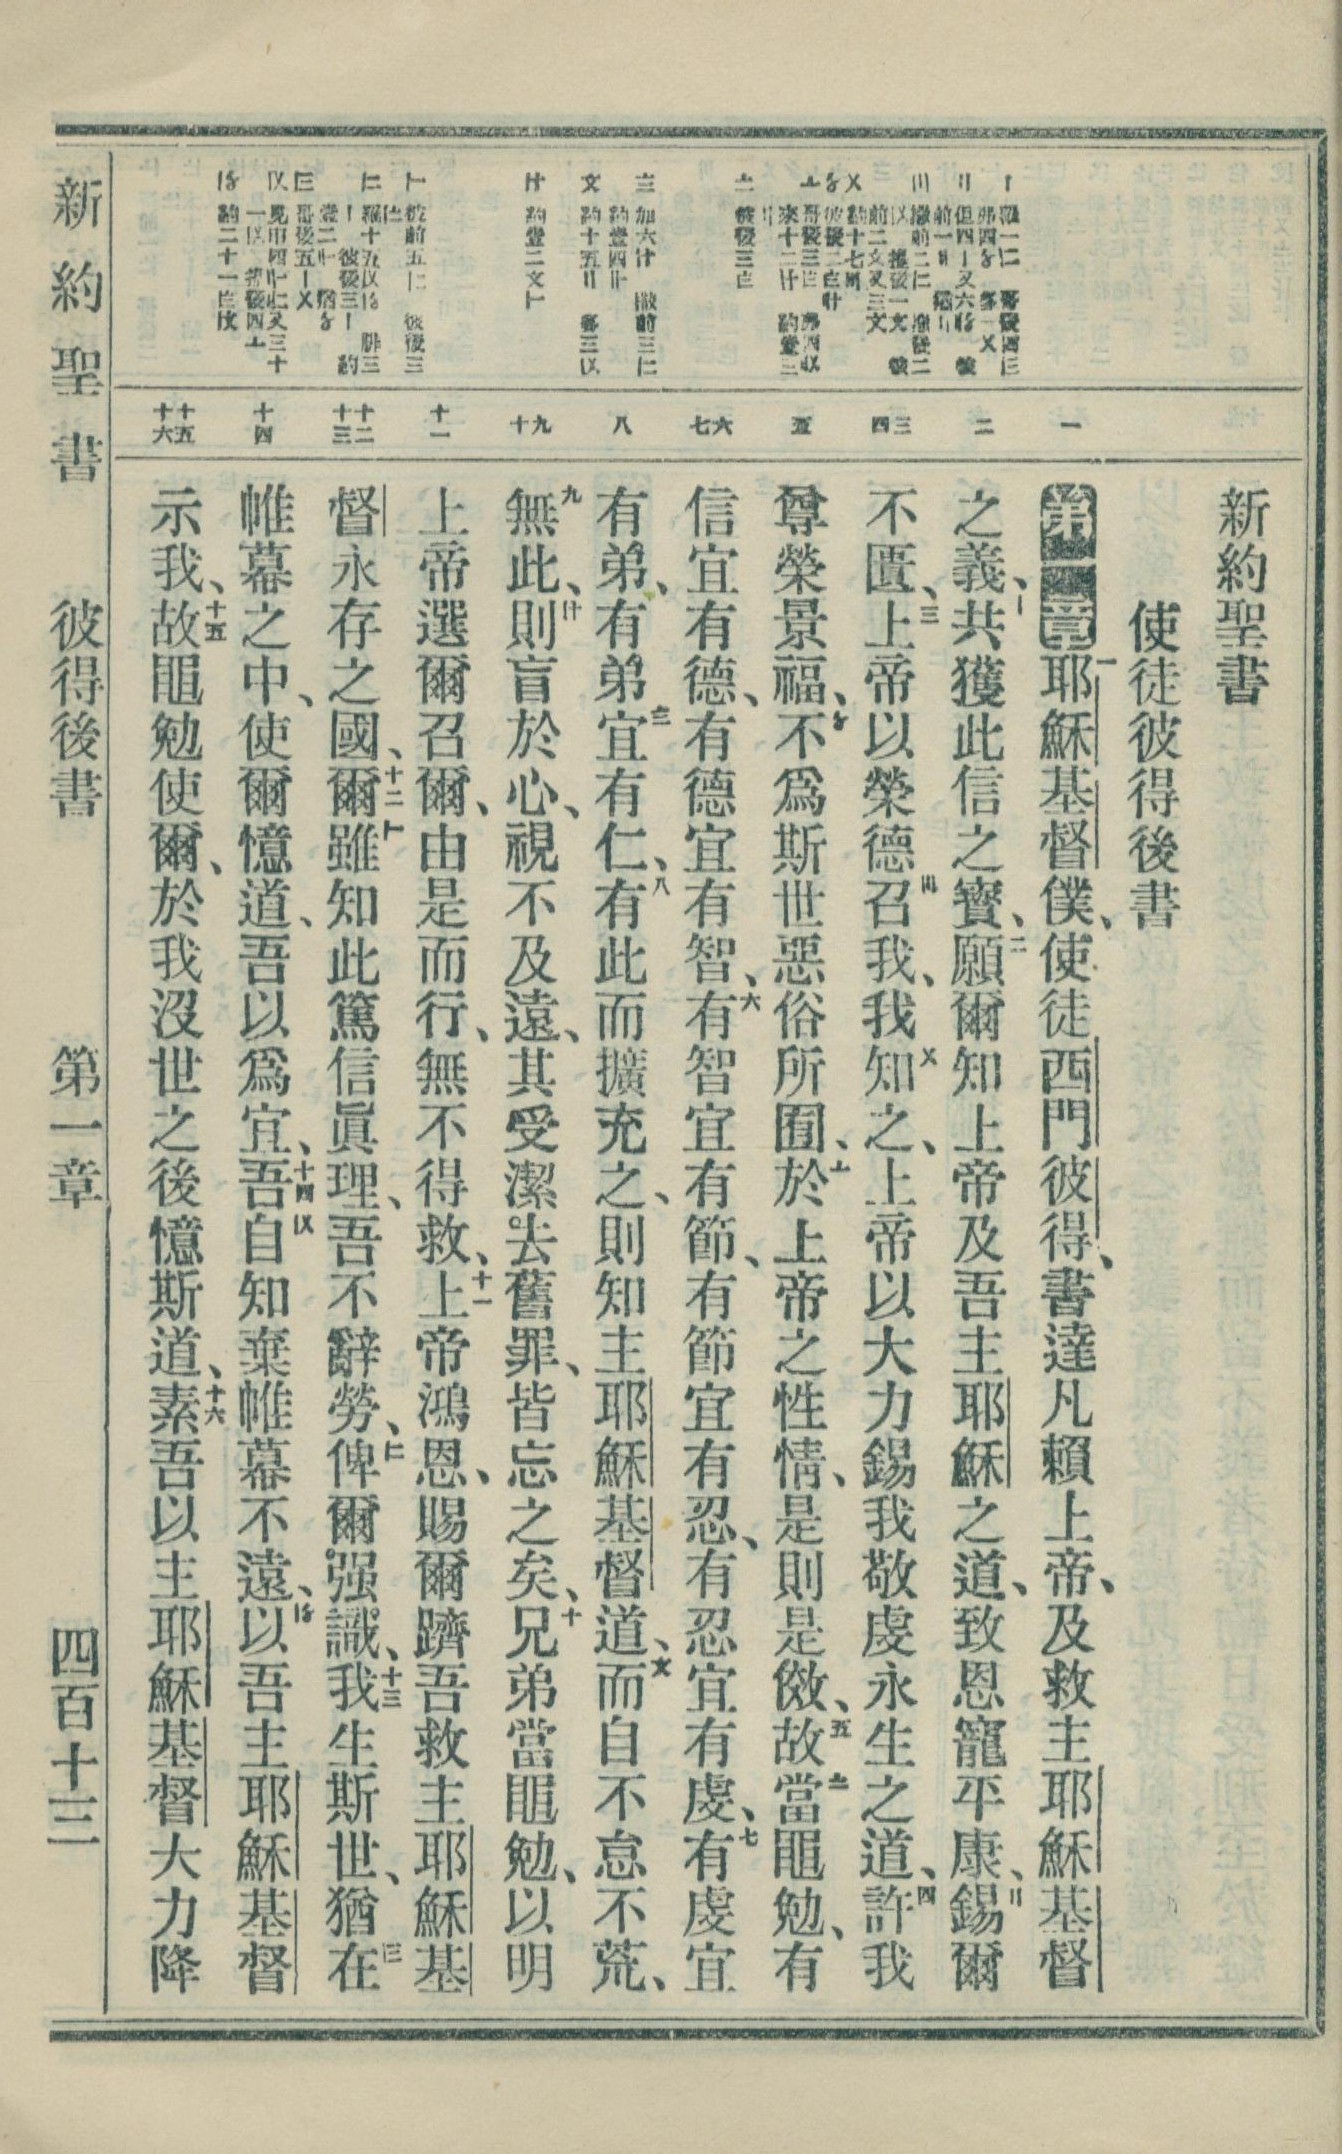 新約聖書
使徒彼得後書
第一章一耶穌基督僕、使徒西門彼得、書達凡賴上帝、及救主耶穌基督
之義、共獲此信之寳、二願爾知上帝及吾主耶穌之道、致恩寵平康、錫爾
不匱、三上帝以榮德召我、我知之、上帝以大力錫我敬虔永生之道、四許我
尊榮景福、不爲斯世惡俗所囿、於上帝之性情、是則是傚、五故當黽勉、有
信宜有德、有德宜有智、六有智宜有節、有節宜有忍、有忍宜有虔、七有虔宜
有弟、有弟宜有仁、八有此而擴充之、則知主耶穌基督道、而自不怠不荒、
九無此、則盲於心、視不及遠、其受潔去舊罪、皆忘之矣、十兄弟當黽勉、以明
上帝選爾召爾、由是而行、無不得救、十一上帝鴻恩、賜爾躋吾救主耶穌基
督永存之國、十二爾雖知此篤信眞理、吾不辭勞、俾爾强識、十三我生斯世、猶在
帷幕之中、使爾憶道、吾以爲宜、十四吾自知棄帷幕不遠、以吾主耶穌基督
示我、十五故黽勉使爾、於我沒世之後憶斯道、十六素吾以主耶穌基督大力降
一
二
三
四
五
六
七
八
九
十
十一
十二
十三
十四
十五
十六
新約聖書 彼得後書 第一章 四百十三